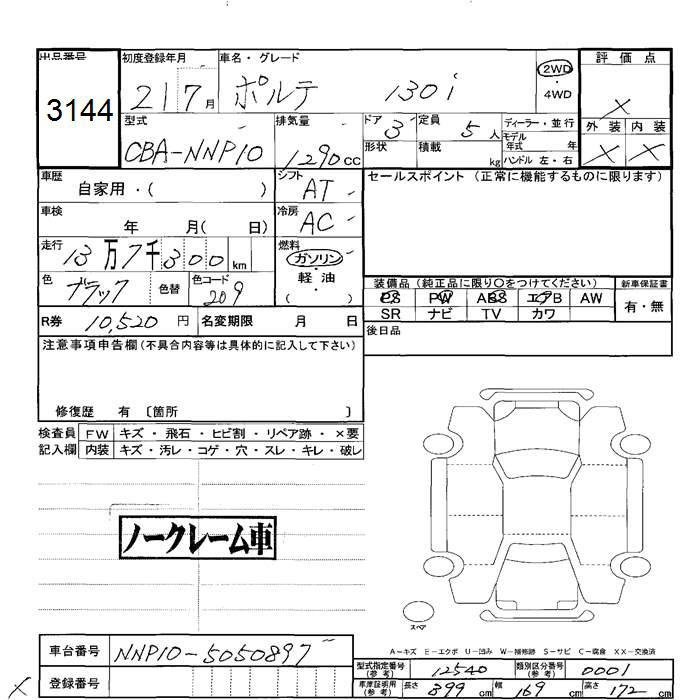 出品番号 初度登録年月 車名・グレード 評価点
3144 21 7月 ポルテ 130i 2WD ・ 4WD X
型式 排気量 ドア 3 定員 5人 ディーラー・並行 外装 内装
CBA-NNP10 1290cc 形状 積載 kg モデル年式 年 X X
ハンドル 左・右
車歴 自家用・( ) シフト AT セールスポイント (正常に機能するものに限ります)
車検 年 月( 日) 冷房 AC
走行 13万7千300km 燃料 ガソリン ・ 軽油 ・ ( )
色 ブラック 色替 色コード 209 装備品 (純正品に限り〇をつけてください) 新車保証書
PS PW ABS エアB AW 有・無
SR ナビ TV カワ
R券 10,520円 名変期限 月 日 後日品
注意事項申告欄(不具合内容等は具体的に記入して下さい)
修復歴 有 〔箇所 〕
検査員 FW キズ・飛石・ヒビ割・リペア跡・×要
記入欄 内装 キズ・汚レ・コゲ・穴・スレ・キレ・破レ
ノークレーム車
スペア
A-キズ E-エクボ U-凹み W-補修跡 S-サビ C-腐食 XX-交換済
車台番号 NNP10-5050897
型式指定番号(参考) 12540 類別区分番号(参考) 0001
X 登録番号
車庫証明用(参考) 長さ 399cm 幅 169cm 高さ 172cm